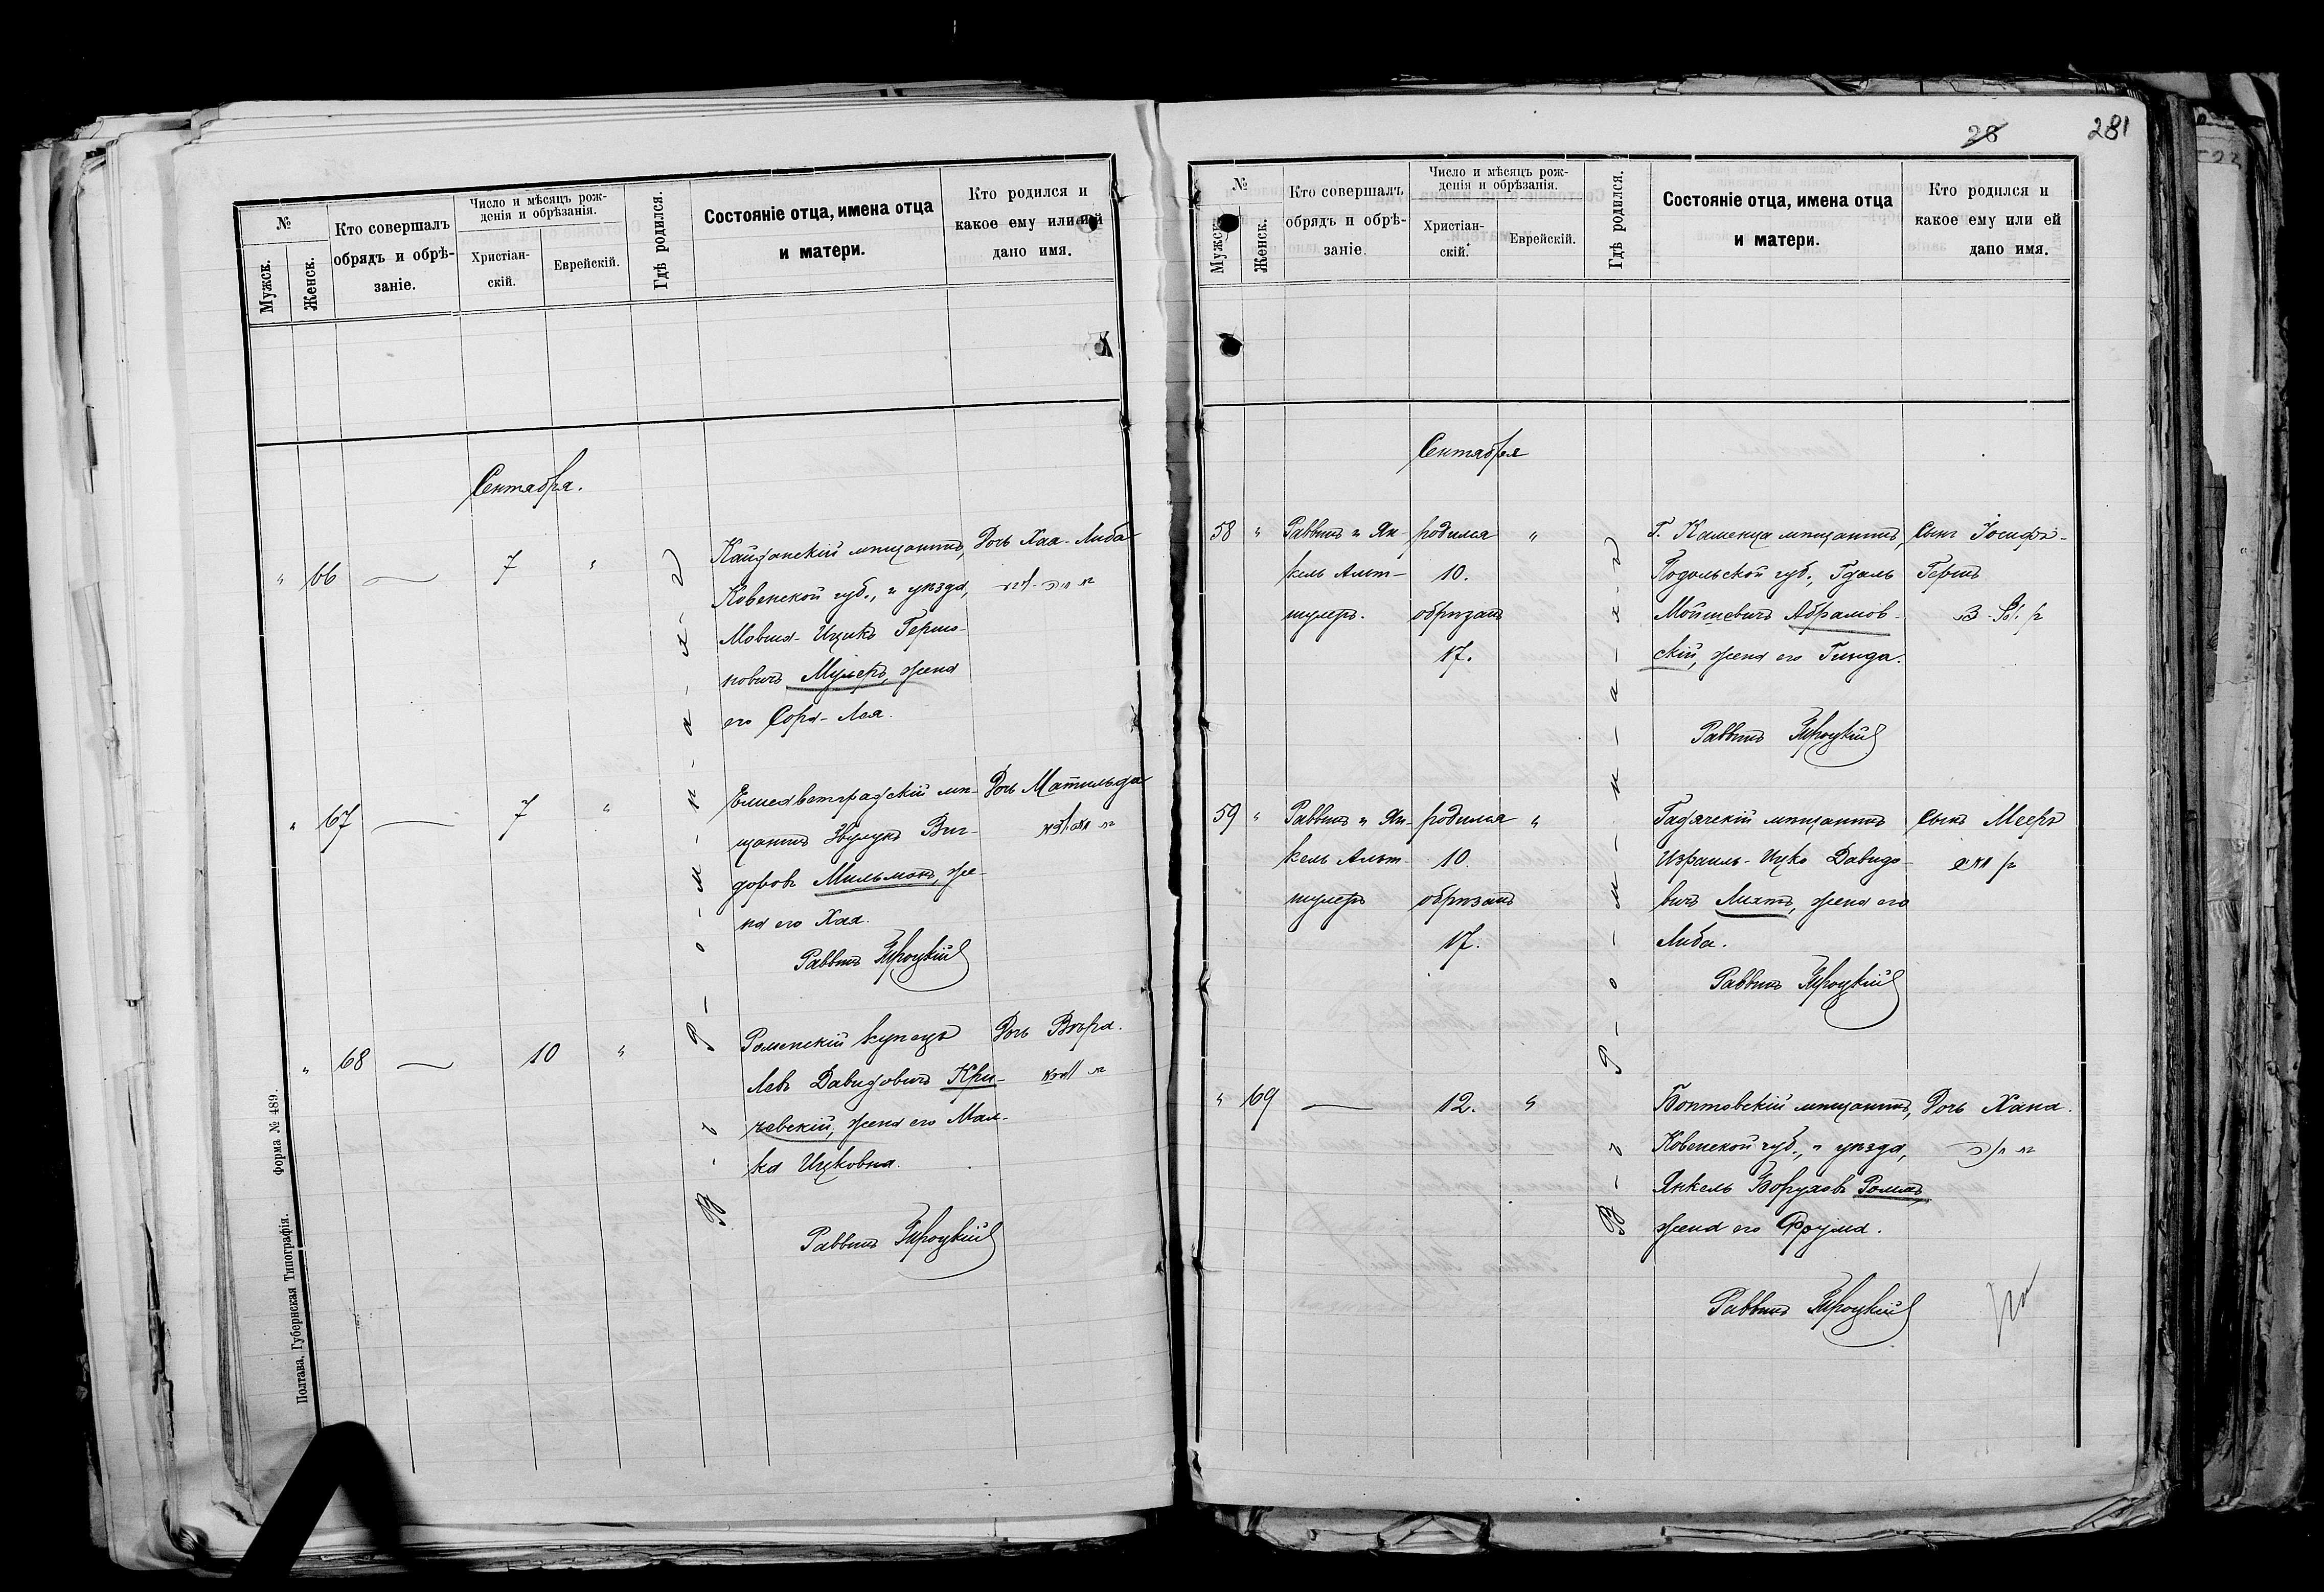 №
Мужск.
Женск.
Кто совершалъ
обрядъ и обрѣ-
заніе.
Число и мѣсяцъ рож-
денія и обрѣзанія.
Христіан-
скій.
Еврейскій.
Гдѣ родился.
Состояніе отца, имена отца
и матери.
Кто родился и
какое ему или ей
дано имя.
Сентября.
" 66 — 7 "
Кайданскій мѣщанинъ,
Ковенской губ., и уѣзда,
Мовша-Ицикъ Герше-
новичъ Мулеръ, жена
его Сора-Лея.
Дочь Хая-Либа
" 67 — 7 "
Елисаветградскій мѣ-
щанинъ
доровъ Мильманъ, же-
на его Хая.
Раввинъ
Дочь Матильда
" 68 — 10 "
Роменскій купецъ
Левъ Давидовичъ Кри-
чевскій, жена его Мал-
ка Ицковна.
Раввинъ
Дочь Вѣра.
В-ъ Р-о-м-н-а-х-ъ
Полтава, Губернская Типографія.
Форма № 489.
28
281
№
Мужск.
Женск.
Кто совершалъ
обрядъ и обрѣ-
заніе.
Число и мѣсяцъ рож-
денія и обрѣзанія.
Христіан-
скій.
Еврейскій.
Гдѣ родился.
Состояніе отца, имена отца
и матери.
Кто родился и
какое ему или ей
дано имя.
Сентября
58 "
Раввинъ и Ян-
кель Альт-
шулеръ.
родился
10.
обрѣзанъ
17.
"
Г. Каменца мѣщанинъ,
Подольской губ., Гдаль
Мойшевичъ Абрамов-
скій, жена его Гинда.
Раввинъ
Сынъ Іосифъ-
Гершъ
59 "
Раввинъ и Ян-
кель Альт-
шулеръ
родился
10.
обрѣзанъ
17.
"
Гадячскій мѣщанинъ
Израиль-Ицко Давидо-
вичъ Лихтъ, жена его
Либа.
Раввинъ
Сынъ Мееръ
" 69 — 12. "
мѣщанинъ,
Ковенской губ., и уѣзда,
Янкель Боруховъ
жена его Фрума.
Раввинъ
Дочь Хана.
В-ъ Р-о-м-н-а-х-ъ